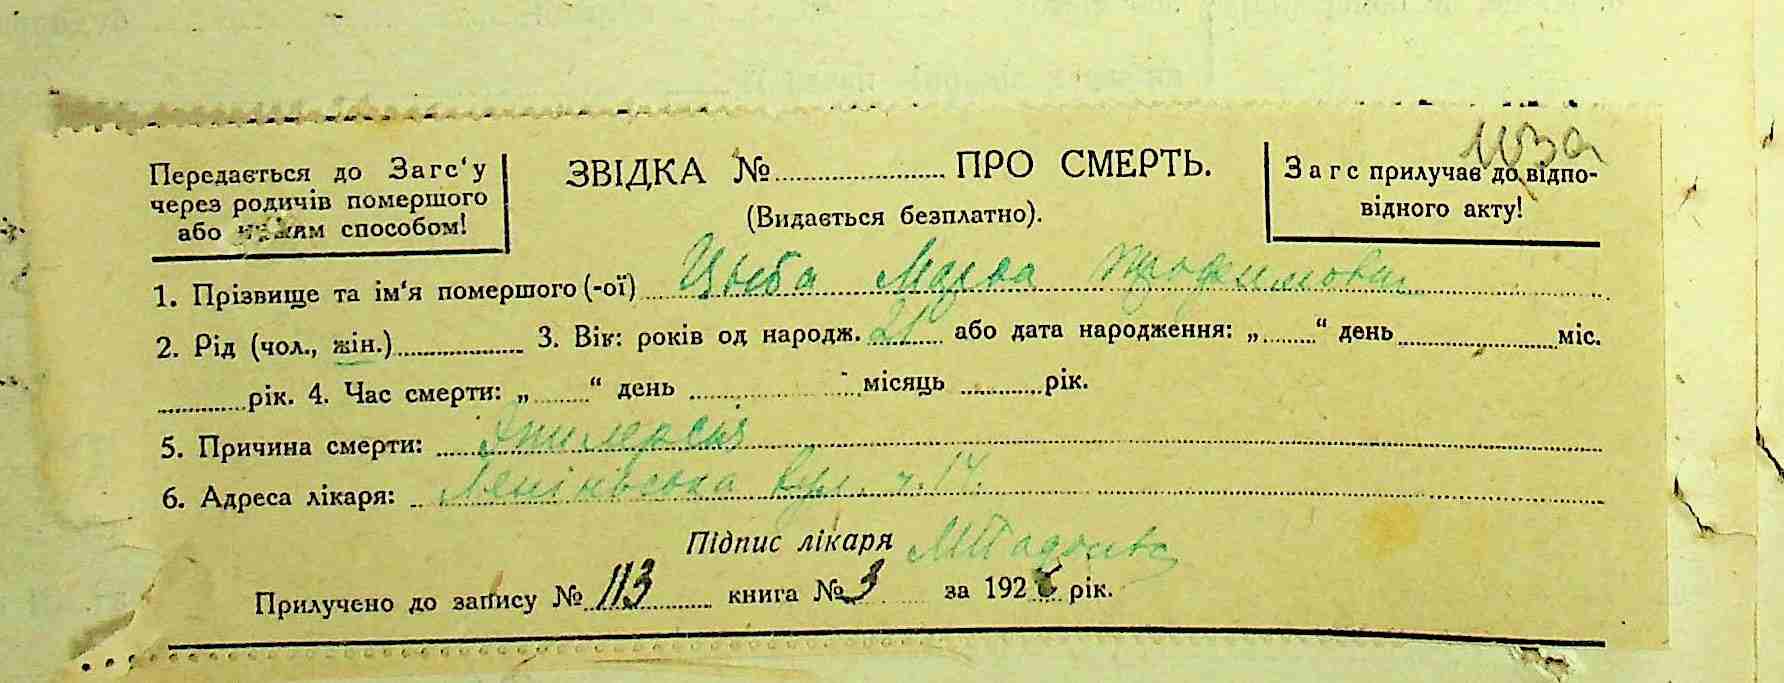 113а
Передається до Загс'у
через родичів помершого
або иншим способом!
ЗВІДКА № ПРО СМЕРТЬ.
(Видається безплатно).
Загс прилучає до відпо-
відного акту!
1. Прізвище та ім'я помершого (-ої) Цыба Марва Трофимовна
2. Рід (чол., жін.) 3. Вік: років од народж. 21 або дата народження: „ “ день міс.
рік. 4. Час смерти: „ “ день місяць рік.
5. Причина смерти: Эпилепсия
6. Адреса лікаря: Ленінівська вул. ч. 14.
Підпис лікаря
Прилучено до запису № 113 книга № 3 за 192 рік.